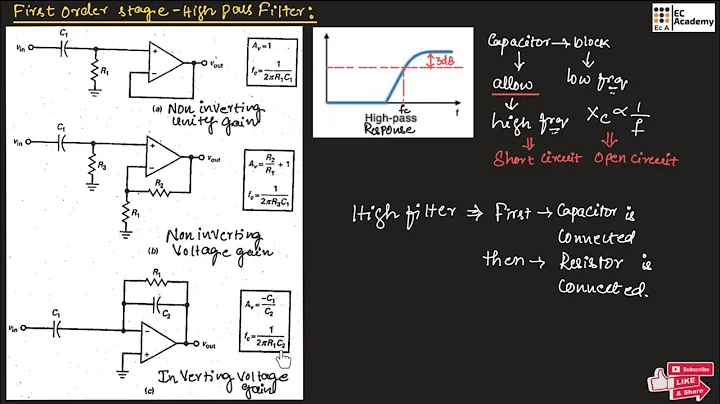 First Order stage - High Pass Filter:
C1
vin
R1
vout
Av = 1
fc = 1/2πR1C1
(a) Non inverting
Unity gain
C1
vin
R3
vout
R2
R1
Av = R2/R1 + 1
fc = 1/2πR3C1
Non inverting
(b) Voltage gain
R1
C2
C1
vin
vout
Av = -C1/C2
fc = 1/2πR1C2
(c) Inverting voltage
gain
3dB
fc
f
High-pass
Response
Capacitor → block
allow
low frq
high frq
Xc ∝ 1/f
Short circuit
Open circuit
High filter ⇒ First → Capacitor is
Connected
then → Resistor is
Connected.
EC
Academy
Ec A
Subscribe
LIKE
& Share